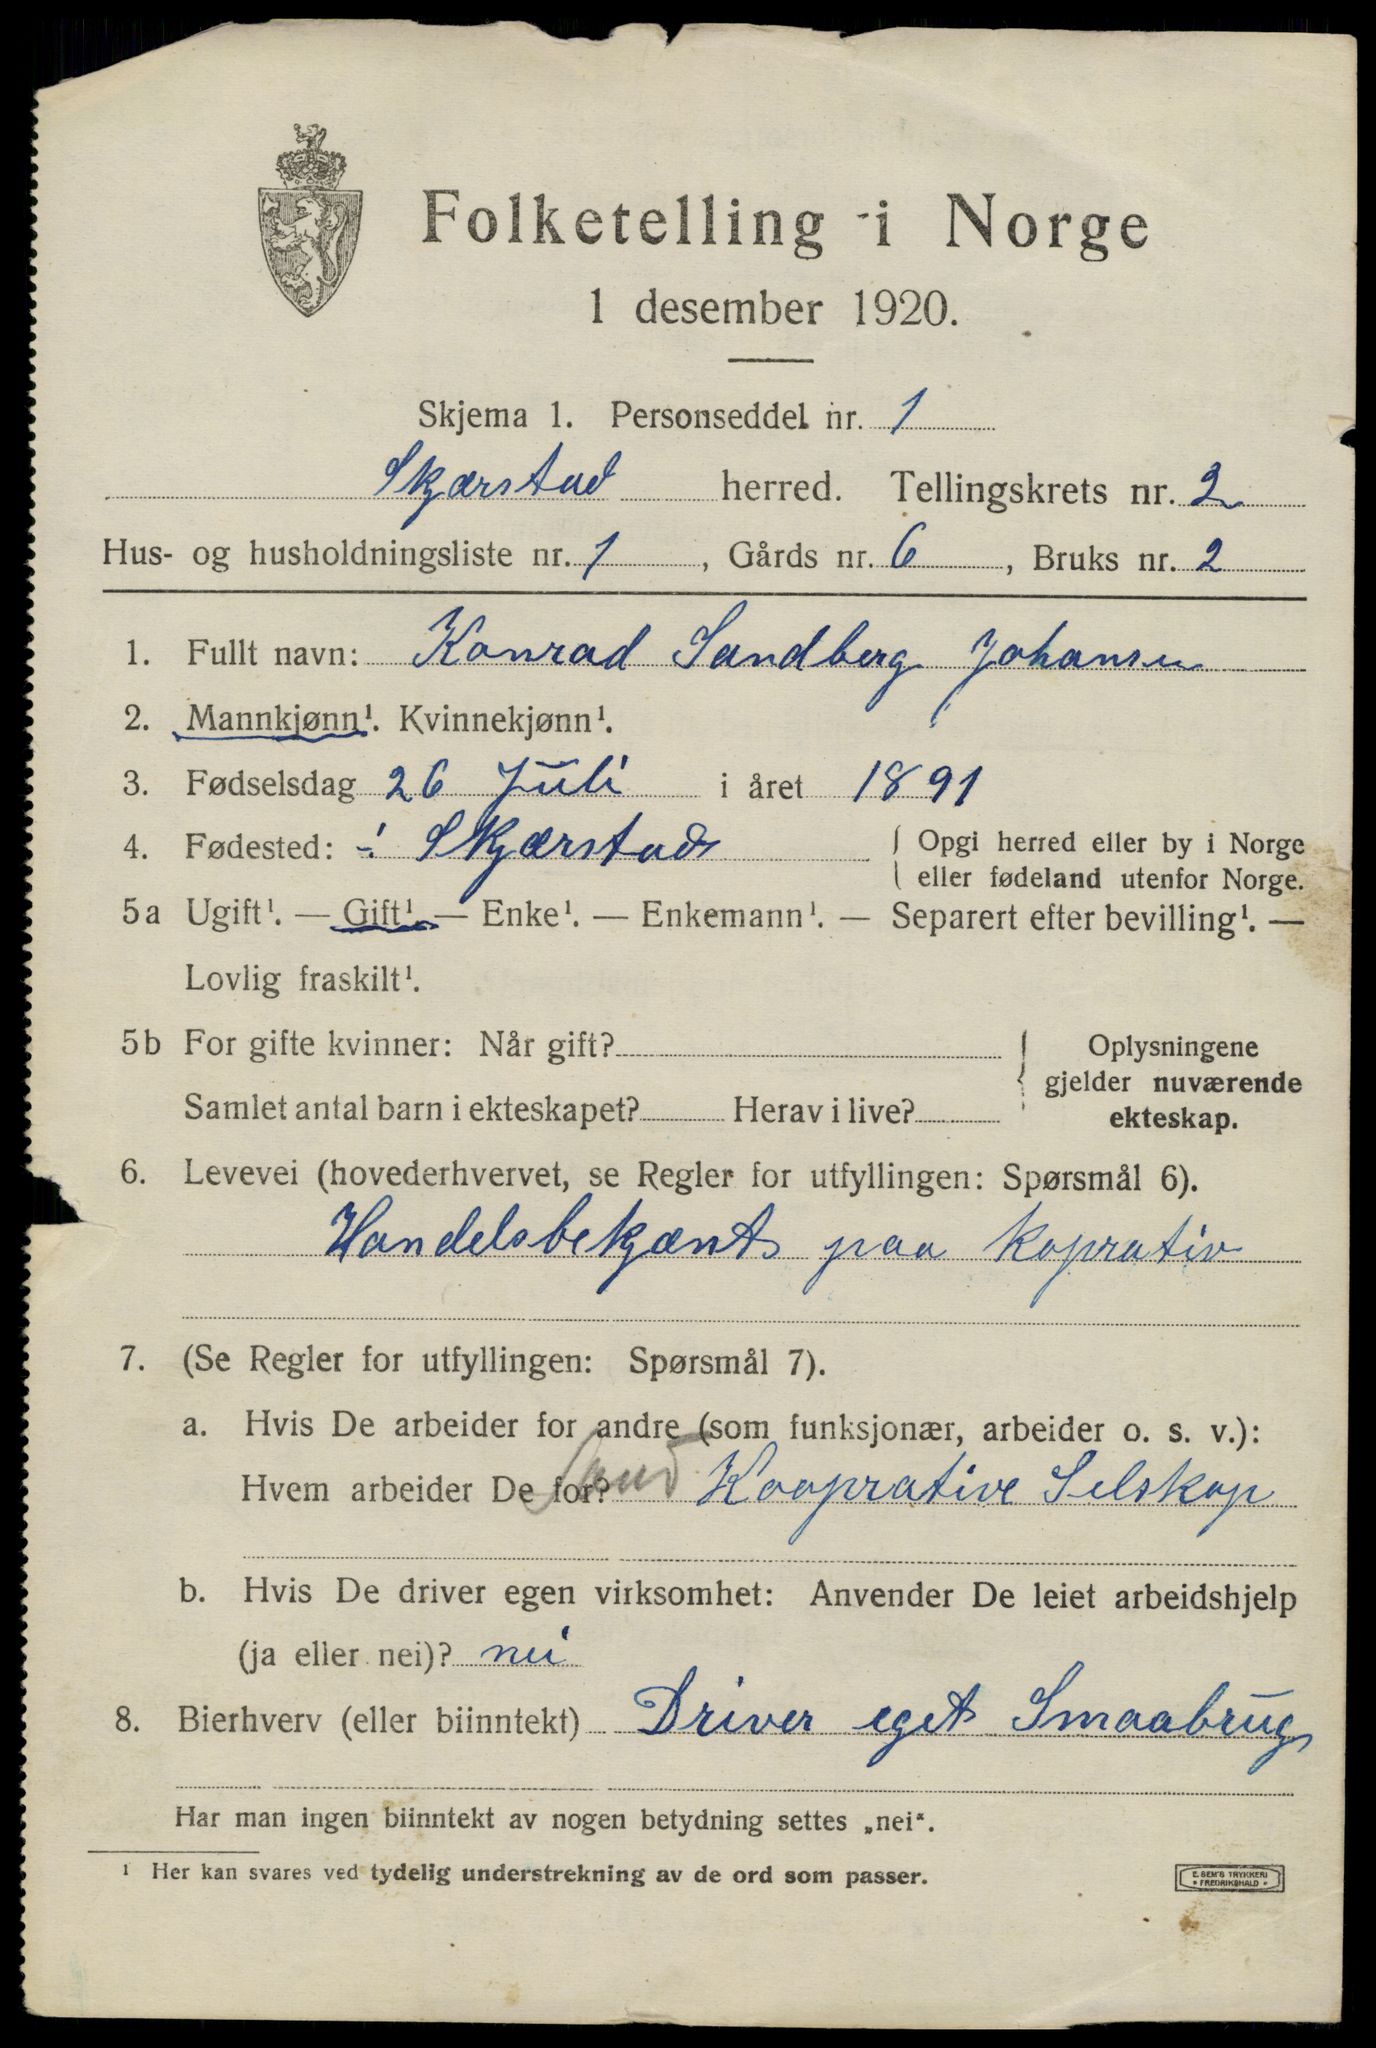 Folketelling i Norge
1 desember 1920.
Skjema 1. Personseddel nr. 1
Skjærstad herred. Tellingskrets nr. 2
Hus- og husholdningsliste nr. 1, Gårds nr. 6, Bruks nr. 2
1. Fullt navn: Konrad Sandberg Johansen
2. Mannkjønn¹. Kvinnekjønn¹.
3. Fødselsdag 26 Juli i året 1891
4. Fødested: i Skjærstad { Opgi herred eller by i Norge
eller fødeland utenfor Norge.
5a Ugift¹. — Gift¹. — Enke¹. — Enkemann¹. — Separert efter bevilling¹. —
Lovlig fraskilt¹.
5b For gifte kvinner: Når gift? { Oplysningene
gjelder nuværende
Samlet antal barn i ekteskapet? Herav i live?
ekteskap.
6. Levevei (hovederhvervet, se Regler for utfyllingen: Spørsmål 6).
Handelsbekjænt paa Koprativ
7. (Se Regler for utfyllingen: Spørsmål 7).
a. Hvis De arbeider for andre (som funksjonær, arbeider o. s. v.):
Hvem arbeider De for? Kooprative Selskap
b. Hvis De driver egen virksomhet: Anvender De leiet arbeidshjelp
(ja eller nei)? nei
8. Bierhverv (eller biinntekt) Driver eget Smaabrug
Har man ingen biinntekt av nogen betydning settes „nei“.
¹ Her kan svares ved tydelig understrekning av de ord som passer.
E. SEM'S TRYKKERI
* FREDRIKSHALD *